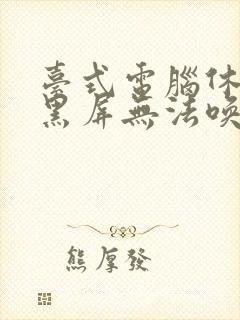 臺式電腦休
黑屏無法喚
熊厚發